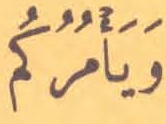 وَيَأْمُرُكُمْ